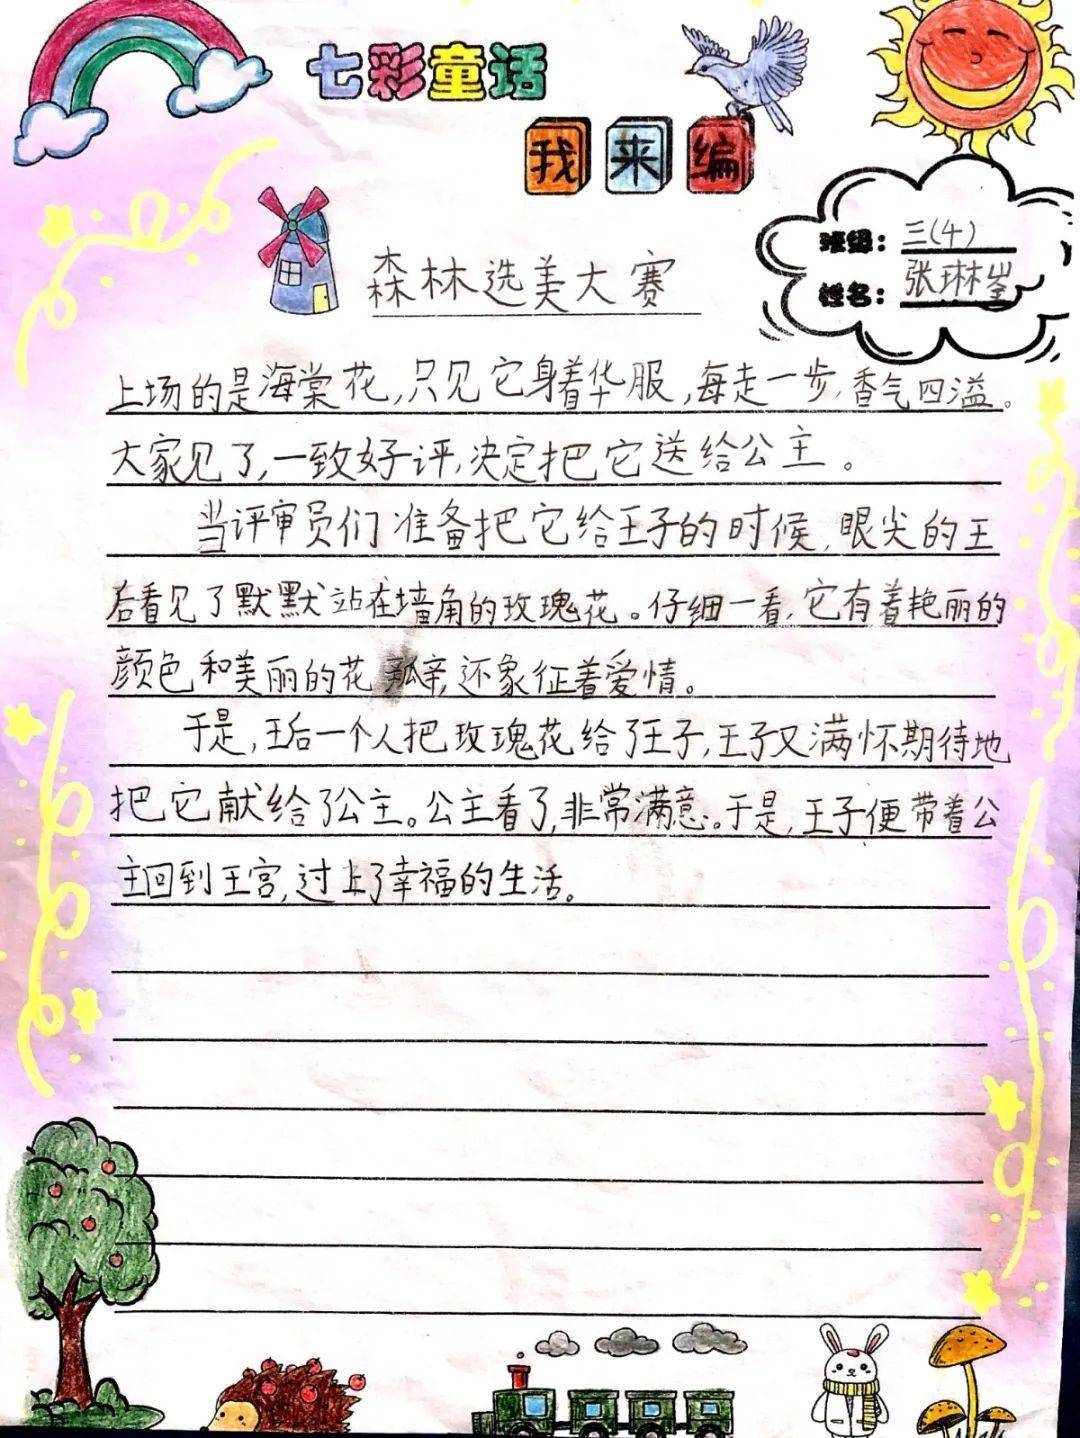 七彩童话
我来编
班级：三(4)
姓名：张琳崟
森林选美大赛
上场的是海棠花，只见它身着华服，每走一步，香气四溢。
大家见了，一致好评，决定把它送给公主。
当评审员们准备把它给王子的时候，眼尖的王
后看见了默默站在墙角的玫瑰花。仔细一看，它有着艳丽的
颜色和美丽的花瓣，还象征着爱情。
于是，王后一个人把玫瑰花给了王子，王子又满怀期待地
把它献给了公主。公主看了，非常满意。于是，王子便带着公
主回到王宫，过上了幸福的生活。